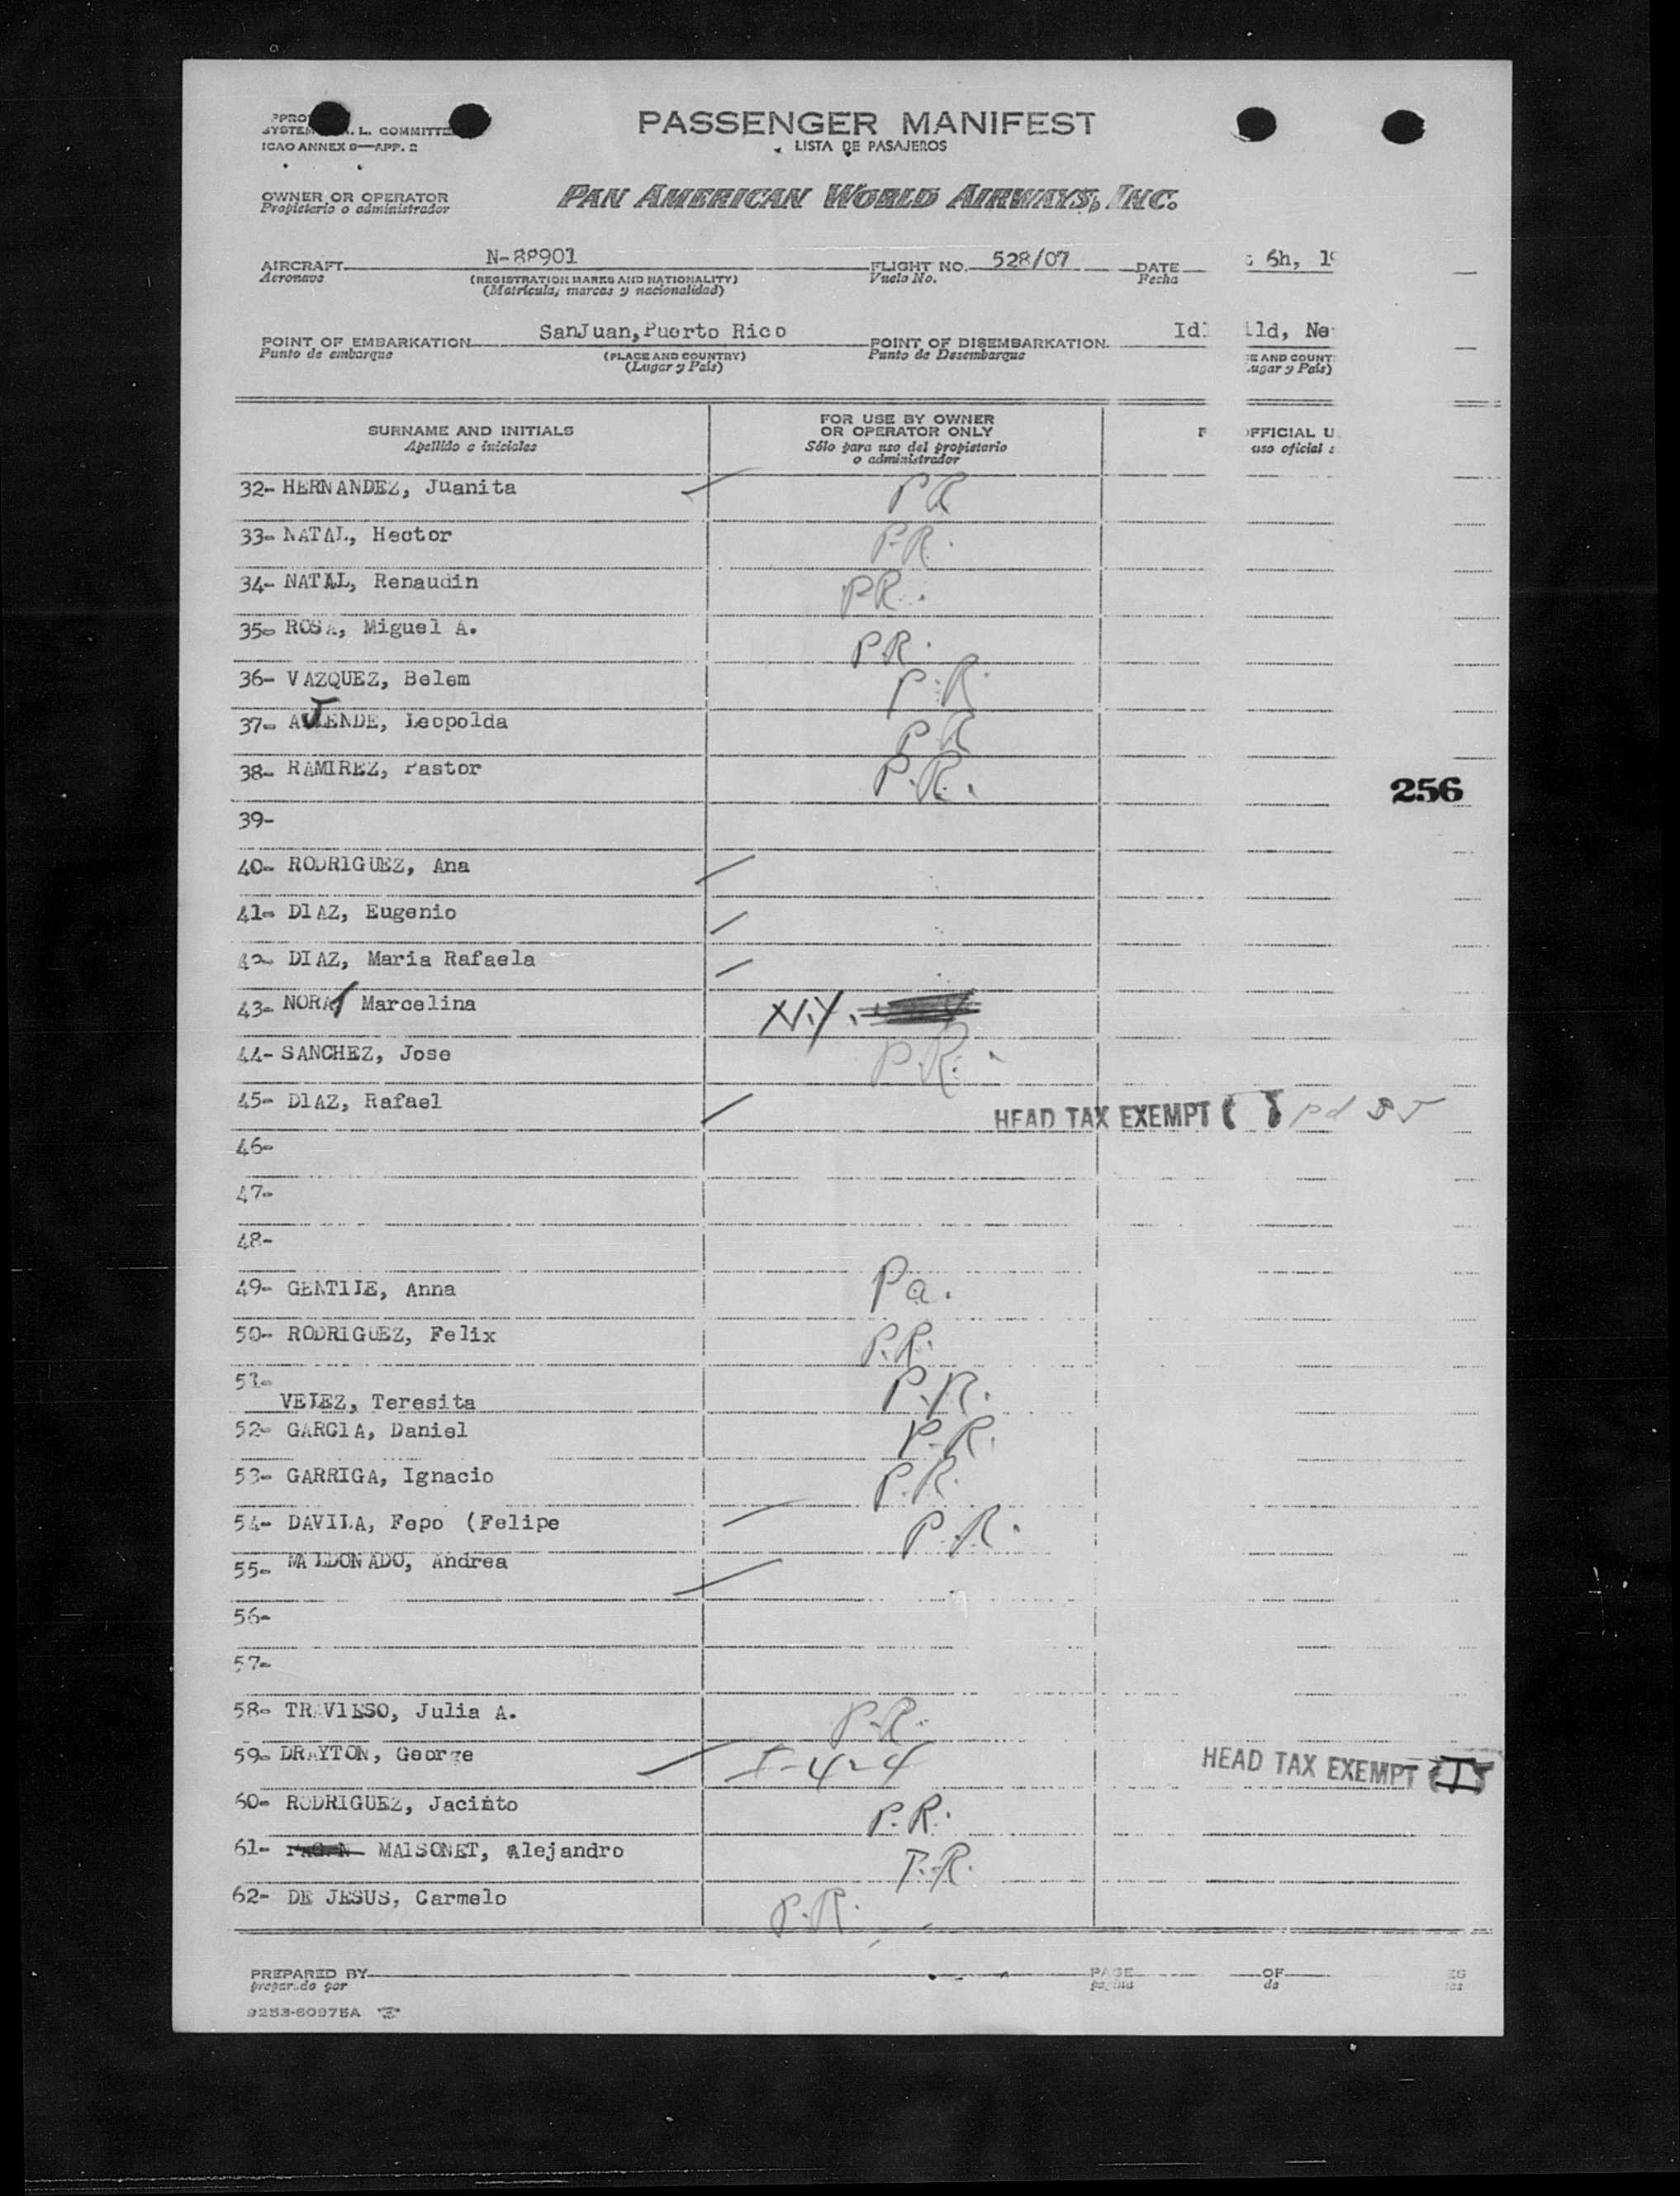 SYSTEM A. L. COMMITTE
ICAO ANNEX 9—APP. 2
PASSENGER MANIFEST
LISTA DE PASAJEROS
OWNER OR OPERATOR
Propietario o administrador
PAN AMERICAN WORLD AIRWAYS, INC.
AIRCRAFT N-88901 FLIGHT NO. 528/07 DATE 6h, 19
Aeronave (REGISTRATION MARKS AND NATIONALITY) Vuelo No. Fecha
(Matrícula, marcas y nacionalidad)
POINT OF EMBARKATION SanJuan,Puerto Rico POINT OF DISEMBARKATION Idl ild, Ne
Punto de embarque (PLACE AND COUNTRY) Punto de Desembarque E AND COUNT
(Lugar y País) ugar y País)
SURNAME AND INITIALS FOR USE BY OWNER
OR OPERATOR ONLY F OFFICIAL U
Apellido e iniciales Sólo para uso del propietario uso oficial
o administrador
32- HERNANDEZ, Juanita PR
33- NATAL, Hector P.R.
34- NATAL, Renaudin PR.
35- ROSA, Miguel A. P.R.
36- VAZQUEZ, Belem P.R.
37- AJENDE, Leopolda PR
38- RAMIREZ, Pastor P.R.
256
39-
40- RODRIGUEZ, Ana
41- DIAZ, Eugenio
42- DIAZ, Maria Rafaela
43- NORA, Marcelina N.Y.
44- SANCHEZ, Jose P.R.
45- DIAZ, Rafael HEAD TAX EXEMPT ( ) pd
46-
47-
48-
49- GENTILE, Anna Pa.
50- RODRIGUEZ, Felix P.R.
51-
VELEZ, Teresita P.R.
52- GARCIA, Daniel P.R.
53- GARRIGA, Ignacio P.R.
54- DAVILA, Fepo (Felipe P.R.
55- MALDONADO, Andrea
56-
57-
58- TRAVIESO, Julia A. P.R.
59- DRAYTON, George I-424 HEAD TAX EXEMPT (I)
60- RODRIGUEZ, Jacinto P.R.
61- MAISONET, Alejandro P.R.
62- DE JESUS, Carmelo P.R.
PREPARED BY PAGE OF ES
preparado por pagina de
9253-60975A